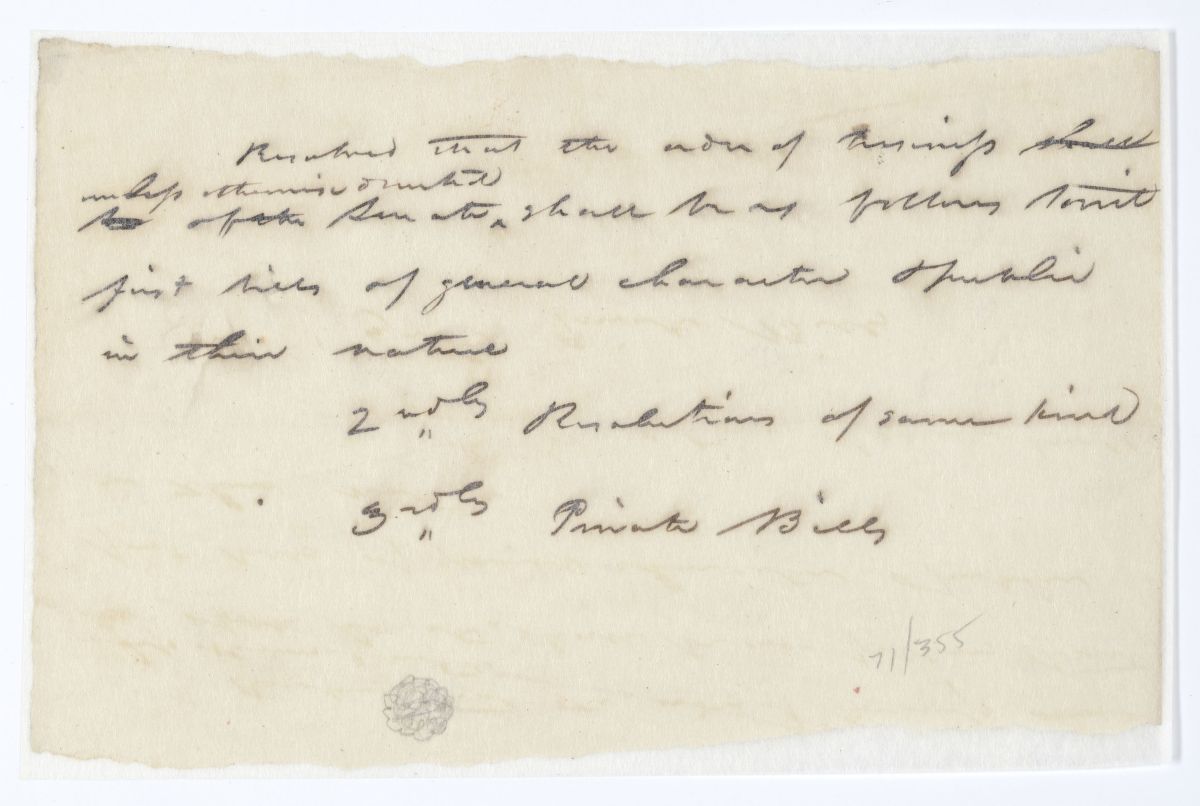 Resolved that the order of business shall
unless otherwise directed
be of the Senate, shall be as follows towit
first bills of general character & public
in their nature
2ndly Resolutions of same kind
3rdly Private Bills
71/355